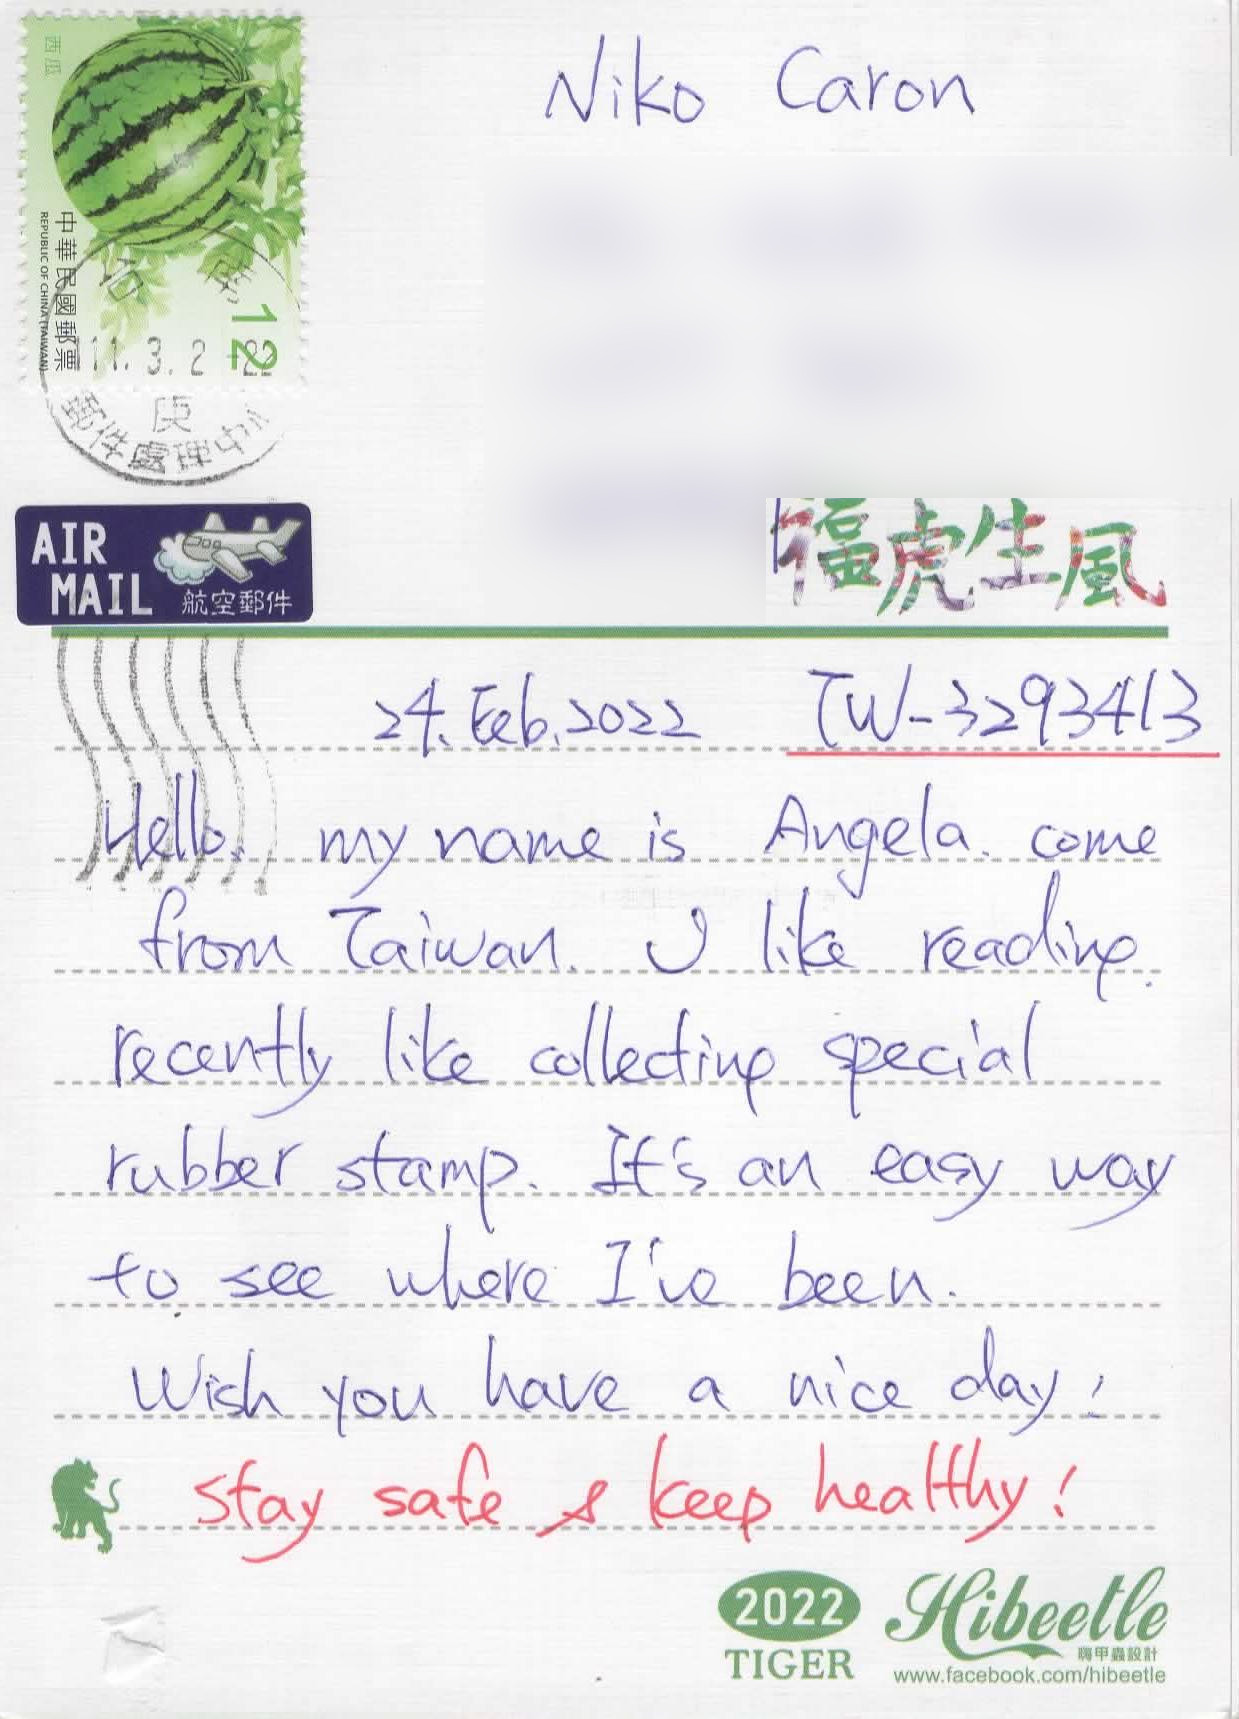 西瓜
中華民國郵票
REPUBLIC OF CHINA (TAIWAN)
12
11.3.2
庚
郵件處理中心
AIR
MAIL 航空郵件
Niko Caron
福虎生風
24. Feb. 2022 TW-3293413
Hello, my name is Angela. come
from Taiwan. I like reading.
recently like collecting special
rubber stamp. It's an easy way
to see where I've been.
Wish you have a nice day!
stay safe & keep healthy!
2022
TIGER
Hibeetle
嗨甲蟲設計
www.facebook.com/hibeetle